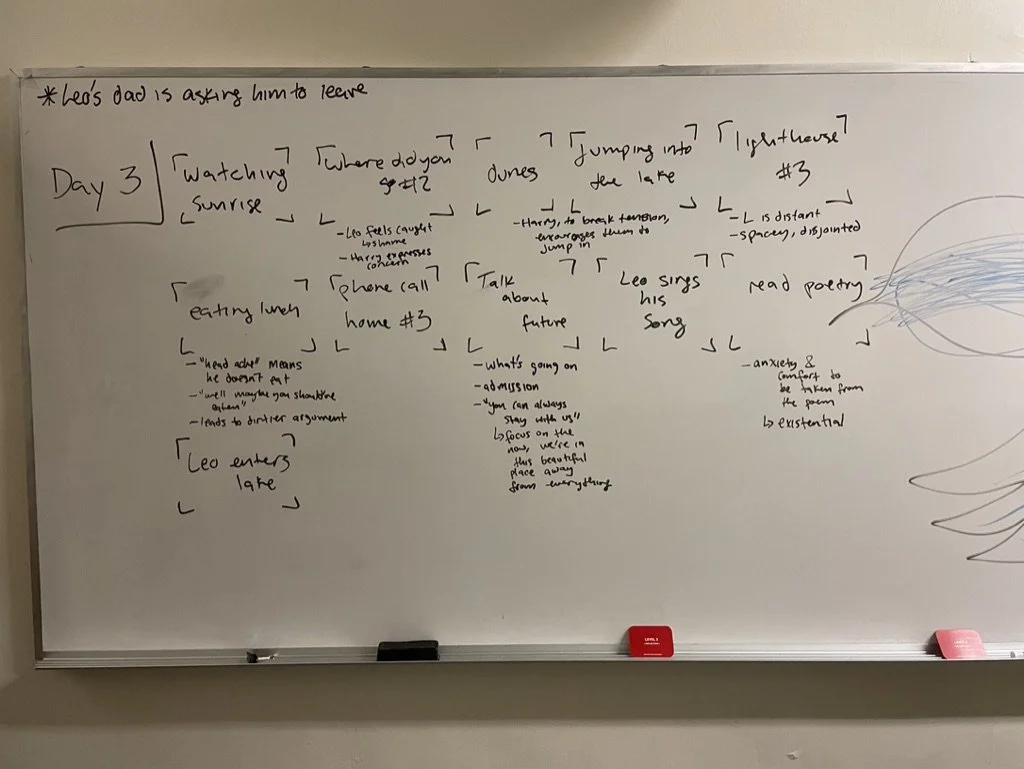 *Leo's dad is asking him to leave
Day 3
Watching
sunrise
where did you
go #2
- Leo feels caught
↳ shame
- Harry expresses
concern
dunes
Jumping into
the lake
- Harry, to break tension,
encourages them to
jump in
lighthouse
#3
- L is distant
- spacey, disjointed
eating lunch
- "head ache" means
he doesn't eat
- "well maybe you should've
eaten"
- leads to dinner argument
phone call
home #3
Talk
about
future
- what's going on
- admission
- "you can always
stay with us"
↳ focus on the
now, we're in
this beautiful
place away
from everything
Leo sings
his
song
read poetry
- anxiety &
comfort to
be taken from
the poem
↳ existential
Leo enters
lake
LEVEL 2